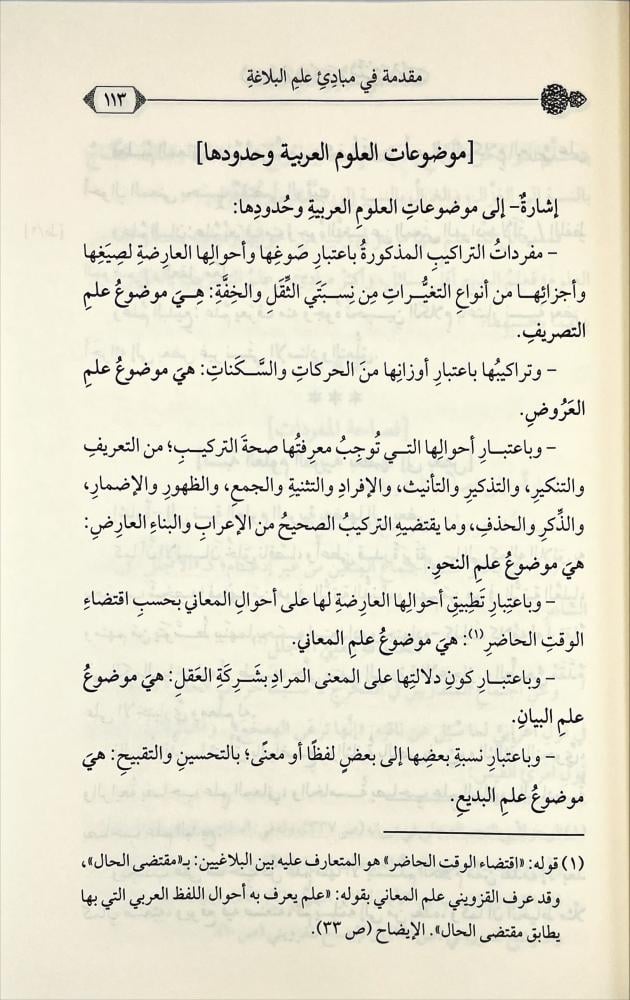 مقدمة في مبادِئِ علمِ البلاغةِ
١١٣
[موضوعات العلوم العربية وحدودها]
إشارةٌ- إلى موضوعاتِ العلومِ العربيةِ وحُدودِها:
- مفرداتُ التراكيبِ المذكورةُ باعتبارِ صَوغِها وأحوالِها العارِضةِ لصِيَغِها
وأجزائِها من أنواعِ التغيُّراتِ مِن نِسبتَي الثِّقَلِ والخِفَّةِ: هِيَ موضوعُ علمِ
التصريفِ.
- وتراكيبُها باعتبارِ أوزانِها منَ الحركاتِ والسَّكَناتِ: هيَ موضوعُ علمِ
العَرُوضِ.
- وباعتبارِ أحوالِها التي تُوجِبُ معرِفتُها صحةَ التركيبِ؛ من التعريفِ
والتنكيرِ، والتذكيرِ والتأنيث، والإفرادِ والتثنيةِ والجمعِ، والظهورِ والإضمارِ،
والذِّكرِ والحذفِ، وما يقتضيهِ التركيبُ الصحيحُ من الإعرابِ والبناءِ العارِضِ:
هيَ موضوعُ علمِ النحوِ.
- وباعتِبارِ تَطبِيقِ أحوالِها العارِضةِ لها على أحوالِ المعاني بحسبِ اقتضاءِ
الوقتِ الحاضرِ(١): هيَ موضوعُ علمِ المعاني.
- وباعتبارِ كونِ دلالتِها على المعنى المرادِ بشَرِكَةِ العَقلِ: هيَ موضوعُ
علمِ البيانِ.
- وباعتبارِ نسبةِ بعضِها إلى بعضٍ لفظًا أو معنًى؛ بالتحسينِ والتقبيحِ: هيَ
موضوعُ علمِ البديعِ.
(١) قوله: «اقتضاء الوقت الحاضر» هو المتعارف عليه بين البلاغيين: بـ«مقتضى الحال»،
وقد عرف القزويني علم المعاني بقوله: «علم يعرف به أحوال اللفظ العربي التي بها
يطابق مقتضى الحال». الإيضاح (ص ٣٣).